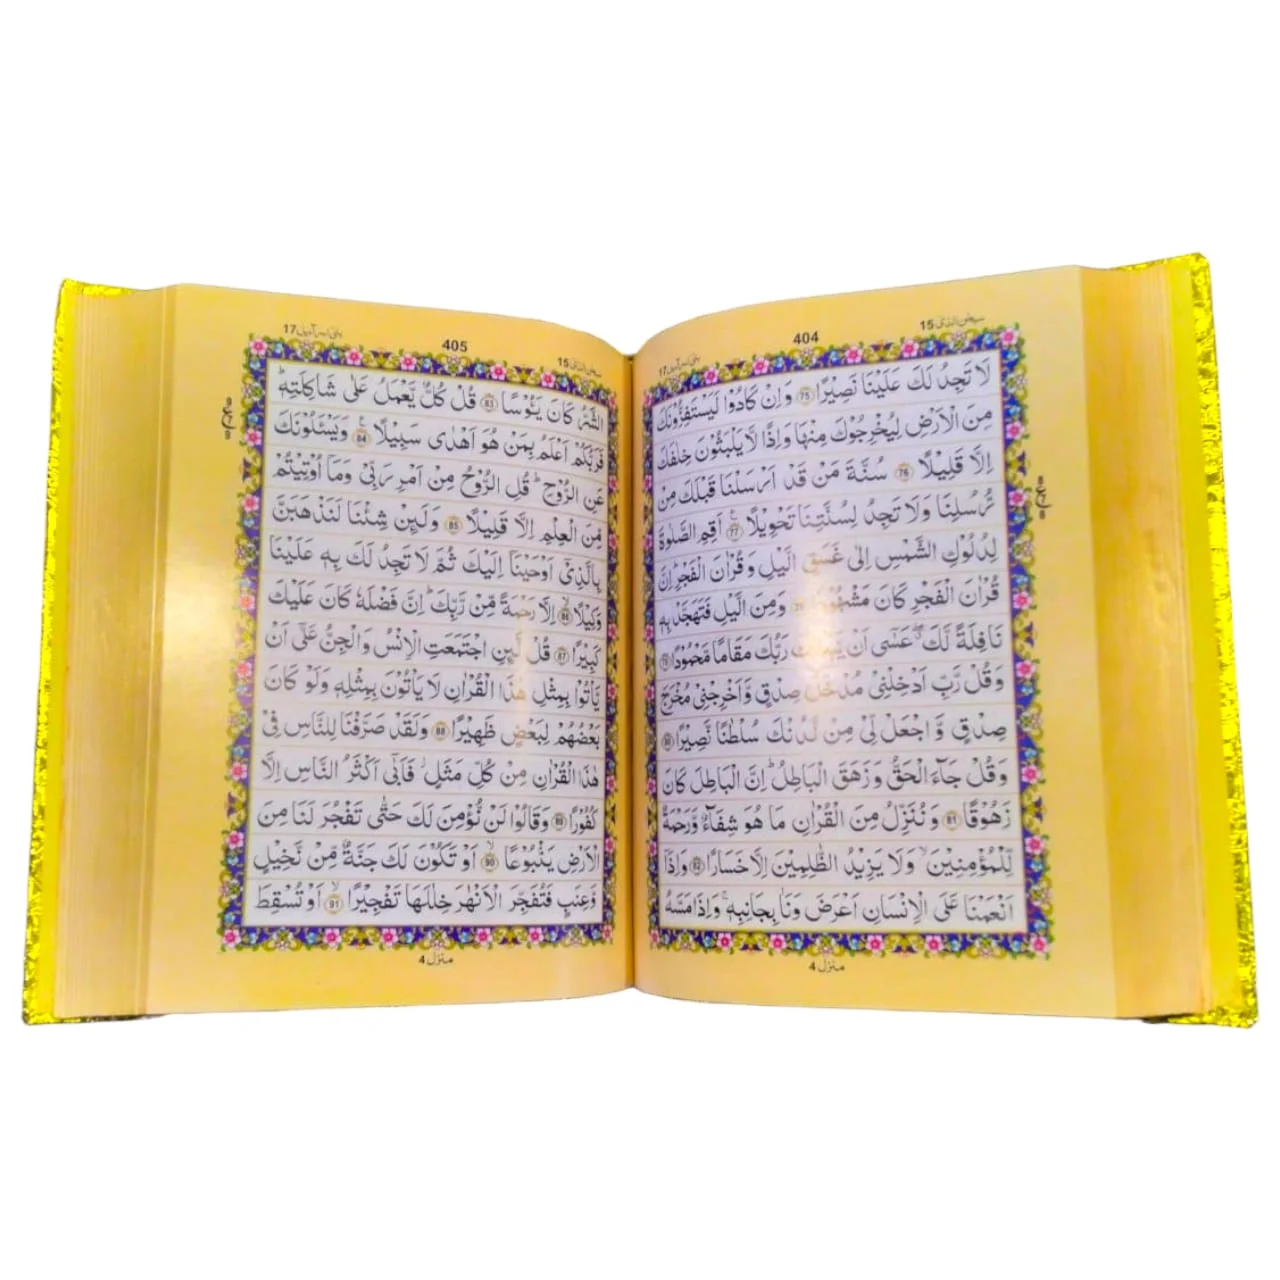 404
سبحٰن الذی 15
بنی اسرآءیل 17
لَا تَجِدُ لَكَ عَلَيْنَا نَصِيْرًا 75 وَاِنْ كَادُوْا لَيَسْتَفِزُّوْنَكَ
مِنَ الْاَرْضِ لِيُخْرِجُوْكَ مِنْهَا وَاِذًا لَّا يَلْبَثُوْنَ خِلٰفَكَ
اِلَّا قَلِيْلًا 76 سُنَّةَ مَنْ قَدْ اَرْسَلْنَا قَبْلَكَ مِنْ
رُّسُلِنَا وَلَا تَجِدُ لِسُنَّتِنَا تَحْوِيْلًا 77 اَقِمِ الصَّلٰوةَ
لِدُلُوْكِ الشَّمْسِ اِلٰى غَسَقِ الَّيْلِ وَقُرْاٰنَ الْفَجْرِ اِنَّ
قُرْاٰنَ الْفَجْرِ كَانَ مَشْهُوْدًا وَمِنَ الَّيْلِ فَتَهَجَّدْ بِهٖ
نَافِلَةً لَّكَ عَسٰٓى اَنْ يَّبْعَثَكَ رَبُّكَ مَقَامًا مَّحْمُوْدًا 79
وَقُلْ رَّبِّ اَدْخِلْنِيْ مُدْخَلَ صِدْقٍ وَّاَخْرِجْنِيْ مُخْرَجَ
صِدْقٍ وَّاجْعَلْ لِّيْ مِنْ لَّدُنْكَ سُلْطٰنًا نَّصِيْرًا 80
وَقُلْ جَآءَ الْحَقُّ وَزَهَقَ الْبَاطِلُ ؕ اِنَّ الْبَاطِلَ كَانَ
زَهُوْقًا 81 وَنُنَزِّلُ مِنَ الْقُرْاٰنِ مَا هُوَ شِفَآءٌ وَّرَحْمَةٌ
لِّلْمُؤْمِنِيْنَ ۙ وَلَا يَزِيْدُ الظّٰلِمِيْنَ اِلَّا خَسَارًا 82 وَاِذَآ
اَنْعَمْنَا عَلَى الْاِنْسَانِ اَعْرَضَ وَنَاٰ بِجَانِبِهٖ ۚ وَاِذَا مَسَّهُ
منزل 4
405
سبحٰن الذی 15
بنی اسرآءیل 17
الشَّرُّ كَانَ يَـُٔوْسًا 83 قُلْ كُلٌّ يَّعْمَلُ عَلٰى شَاكِلَتِهٖ ؕ
فَرَبُّكُمْ اَعْلَمُ بِمَنْ هُوَ اَهْدٰى سَبِيْلًا 84 وَيَسْـَٔلُوْنَكَ
عَنِ الرُّوْحِ ؕ قُلِ الرُّوْحُ مِنْ اَمْرِ رَبِّيْ وَمَآ اُوْتِيْتُمْ
مِّنَ الْعِلْمِ اِلَّا قَلِيْلًا 85 وَلَئِنْ شِئْنَا لَنَذْهَبَنَّ
بِالَّذِيْٓ اَوْحَيْنَآ اِلَيْكَ ثُمَّ لَا تَجِدُ لَكَ بِهٖ عَلَيْنَا
وَكِيْلًا 86 اِلَّا رَحْمَةً مِّنْ رَّبِّكَ ؕ اِنَّ فَضْلَهٗ كَانَ عَلَيْكَ
كَبِيْرًا 87 قُلْ لَّئِنِ اجْتَمَعَتِ الْاِنْسُ وَالْجِنُّ عَلٰٓى اَنْ
يَّاْتُوْا بِمِثْلِ هٰذَا الْقُرْاٰنِ لَا يَاْتُوْنَ بِمِثْلِهٖ وَلَوْ كَانَ
بَعْضُهُمْ لِبَعْضٍ ظَهِيْرًا 88 وَلَقَدْ صَرَّفْنَا لِلنَّاسِ فِيْ
هٰذَا الْقُرْاٰنِ مِنْ كُلِّ مَثَلٍ ؗ فَاَبٰٓى اَكْثَرُ النَّاسِ اِلَّا
كُفُوْرًا 89 وَقَالُوْا لَنْ نُّؤْمِنَ لَكَ حَتّٰى تَفْجُرَ لَنَا مِنَ
الْاَرْضِ يَنْۢبُوْعًا 90 اَوْ تَكُوْنَ لَكَ جَنَّةٌ مِّنْ نَّخِيْلٍ
وَّعِنَبٍ فَتُفَجِّرَ الْاَنْهٰرَ خِلٰلَهَا تَفْجِيْرًا 91 اَوْ تُسْقِطَ
منزل 4